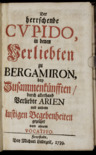 Der
herrschende
CVPIDO,
in denen
Verliebten
zu
BERGAMIRON,
bey
Zusammenkünfften
durch allerhand
Verliebte ARIEN
und andere
lustigen Begebenheiten
von einem
VOCATIVO.